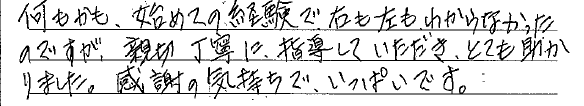 何もかも、始めての経験で右も左もわからなかった
のですが、親切丁寧に、指導していただき、とても助か
りました。感謝の気持ちで、いっぱいです。